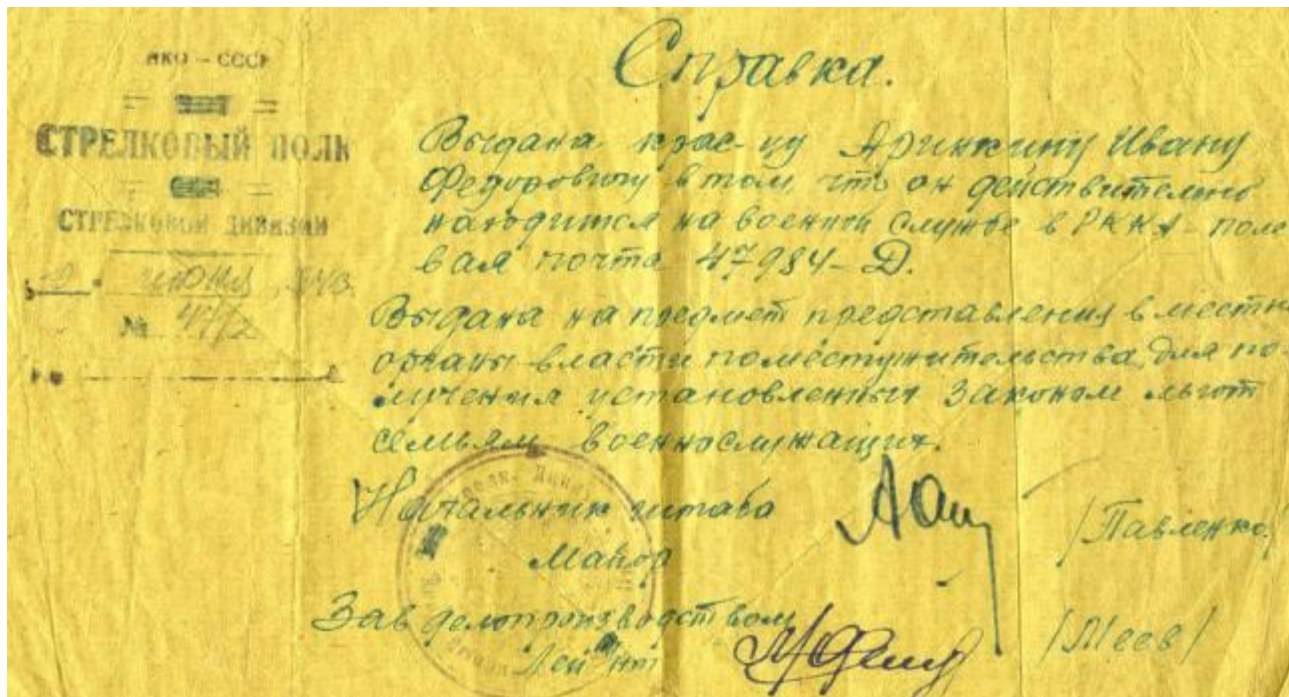 НКО – СССР
СТРЕЛКОВЫЙ ПОЛК
СТРЕЛКОВОЙ ДИВИЗИИ
июня
№ 47/2
Справка.
Выдана крас-цу Аринкину Ивану
Федоровичу в том, что он действительно
находится на военной службе в РККА – поле
вая почта 47984-Д.
Выдана на предмет представления в местн
органы власти по месту жительства, для по-
лучения установленных законом льгот
семьям военнослужащих.
Начальник штаба
Майор
/Павленко/
Зав делопроизводством
Лей-нт